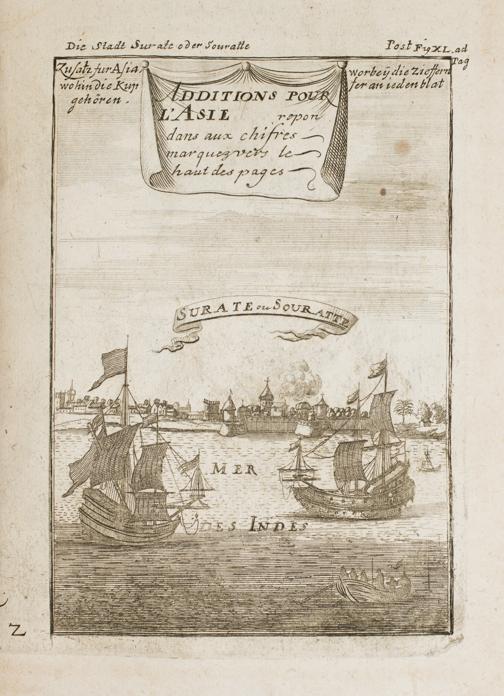 Die Stadt Surate oder Souratte
Post Fig XL. ad Pag
Zusatz fur Asia,
wohin die Kup
gehören.
ADDITIONS POUR
L'ASIE repon
dans aux chifres
marquez vers le
haut des pages
worbeÿ die zieffern
fer an ieden blat
SURATE ou SOURATTE
MER
DES INDES
Z